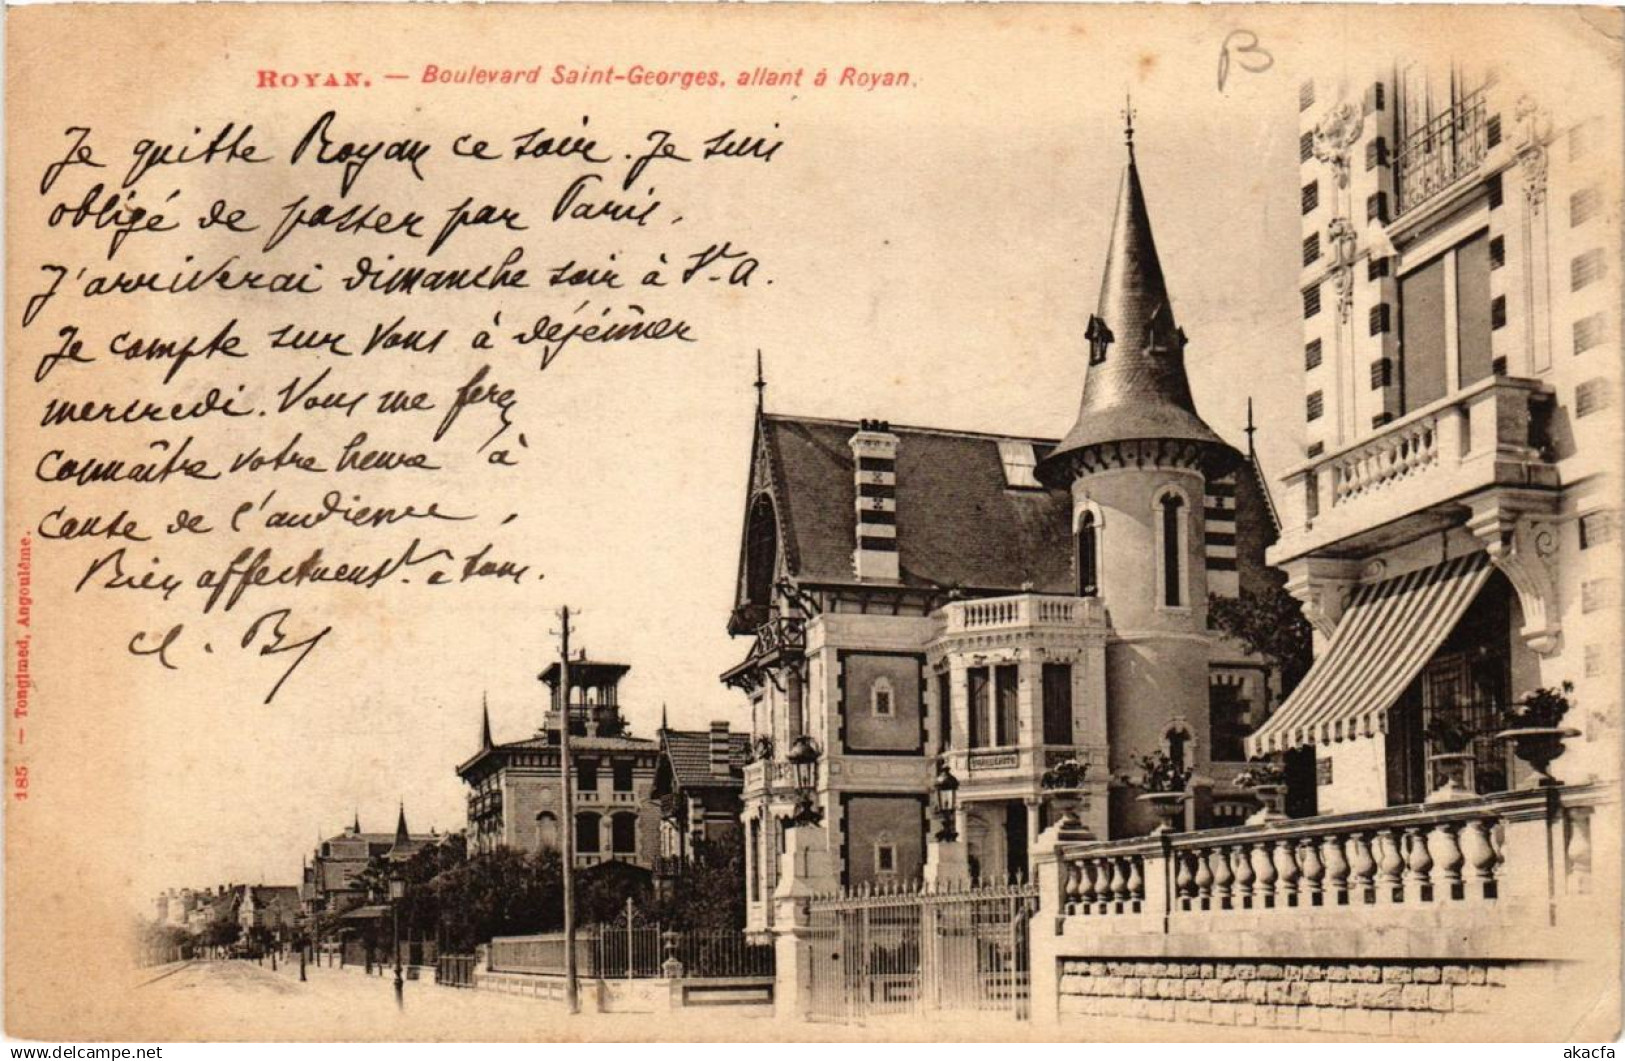 B
ROYAN. — Boulevard Saint-Georges, allant à Royan.
Je quitte Royan ce soir. Je suis
obligé de passer par Paris.
J'arriverai dimanche soir à St-A.
Je compte sur vous à déjeûner
mercredi. Vous me ferez
connaître votre heure à
cause de l'audience.
Bien affectueust. à tous.
185 — Tongimed, Angoulême.
akacfa
delcampe.net